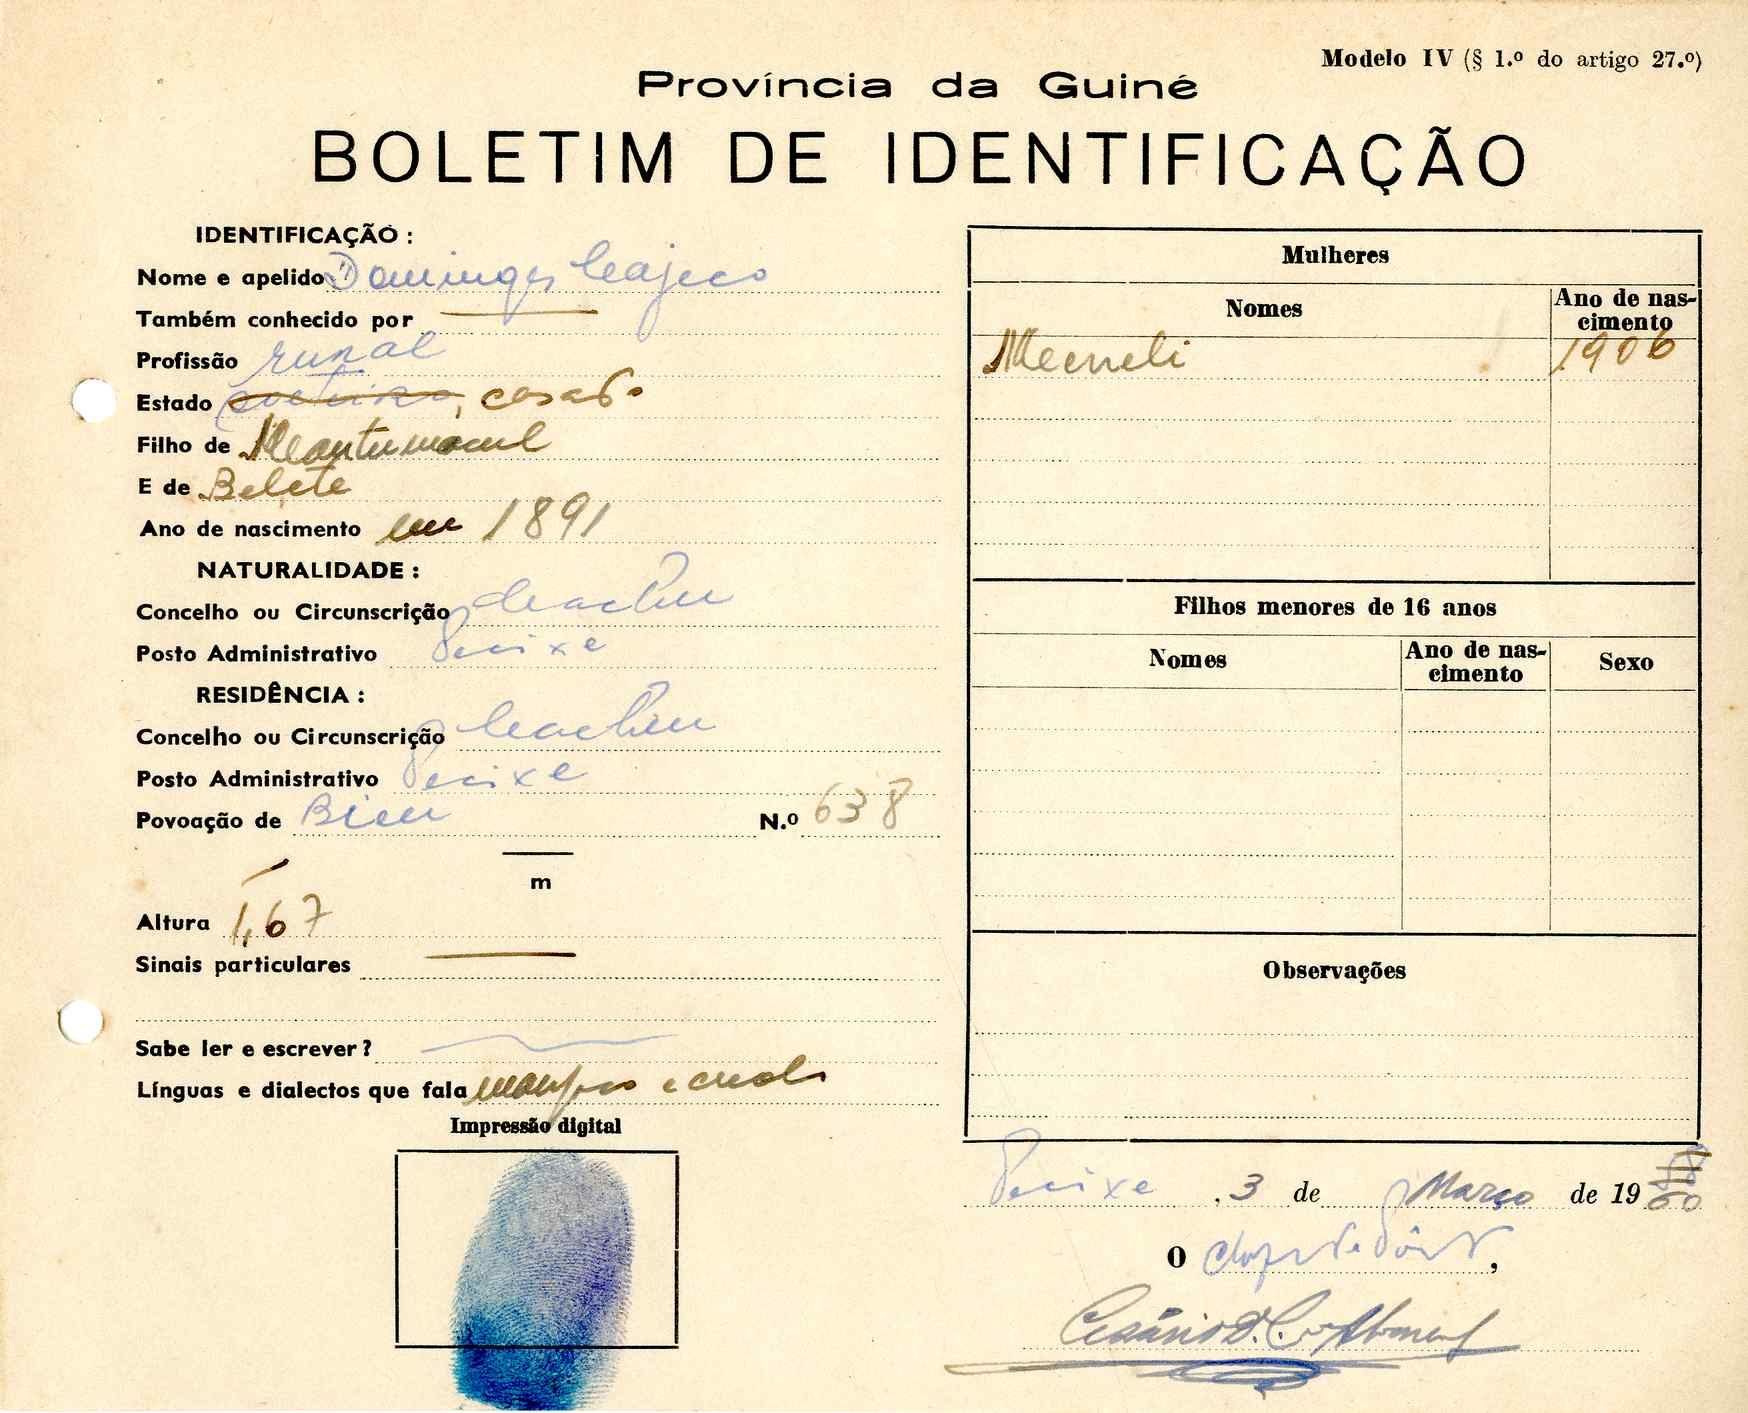 Modelo IV (§ 1.º do artigo 27.º)
Província da Guiné
BOLETIM DE IDENTIFICAÇÃO
IDENTIFICAÇÃO :
Nome e apelido Domingos
Também conhecido por
Profissão rural
Estado casado
Filho de
E de Belete
Ano de nascimento em 1891
NATURALIDADE :
Concelho ou Circunscrição Cacheu
Posto Administrativo Pecixe
RESIDÊNCIA :
Concelho ou Circunscrição Cacheu
Posto Administrativo Pecixe
Povoação de N.º 638
m
Altura 1,67
Sinais particulares
Sabe ler e escrever ?
Línguas e dialectos que fala
Impressão digital
Mulheres
Nomes
Ano de nas-
cimento
1906
Filhos menores de 16 anos
Nomes
Ano de nas-
cimento
Sexo
Observações
Pecixe, 3 de Março de 19
O Chefe de Pôsto,